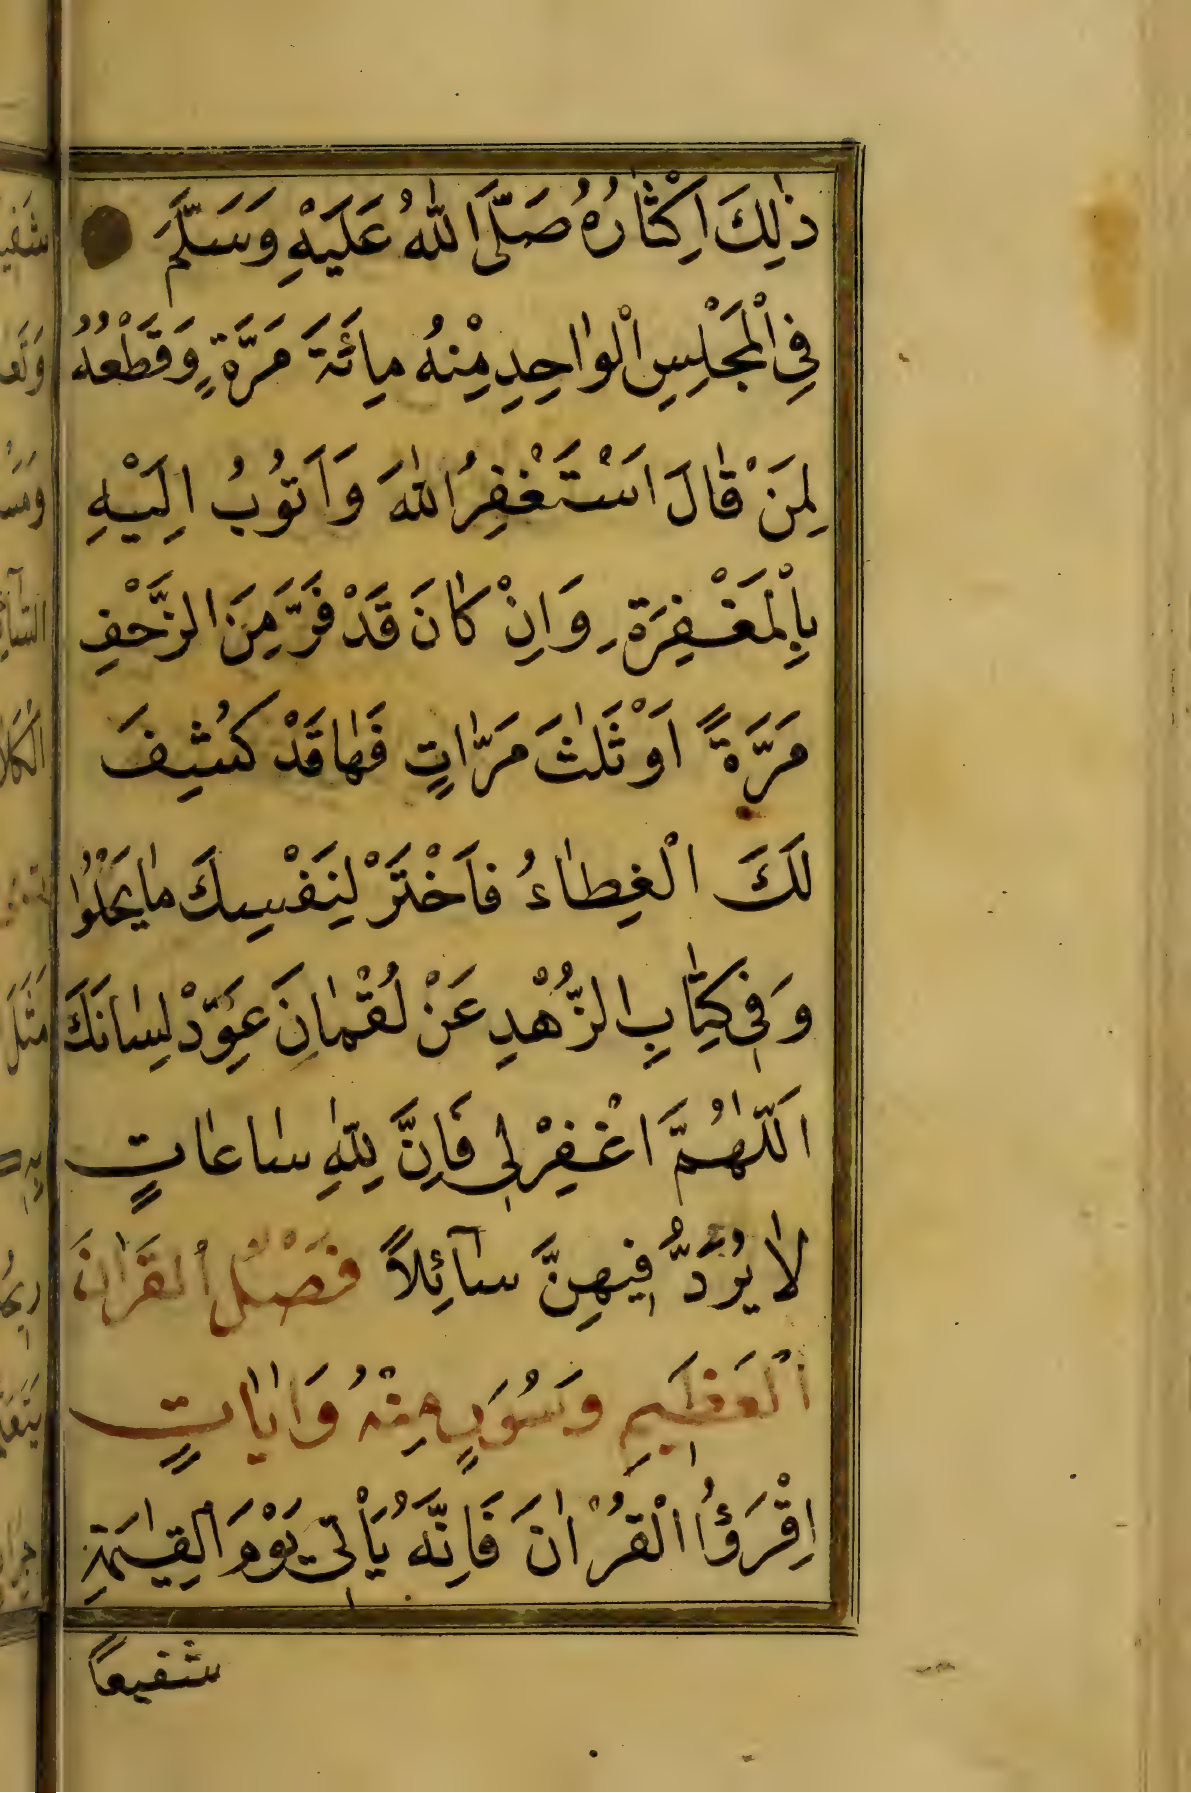 ذٰلِكَ اِكْثَارُهُ صَلَّى اللّٰهُ عَلَيْهِ وَسَلَّمَ
فِي الْمَجْلِسِ الْوَاحِدِ مِنْهُ مِائَةَ مَرَّةٍ وَقَطْعُهُ
لِمَنْ قَالَ اَسْتَغْفِرُ اللّٰهَ وَاَتُوبُ اِلَيْهِ
بِالْمَغْفِرَةِ وَاِنْ كَانَ قَدْ فَرَّ مِنَ الزَّحْفِ
مَرَّةً اَوْ ثَلٰثَ مَرَّاتٍ فَهَا قَدْ كُشِفَ
لَكَ الْغِطَاءُ فَاخْتَرْ لِنَفْسِكَ مَا يَحْلُوا
وَفِي كِتَابِ الزُّهْدِ عَنْ لُقْمَانَ عَوِّدْ لِسَانَكَ
اَللّٰهُمَّ اغْفِرْ لِي فَاِنَّ لِلّٰهِ سَاعَاتٍ
لَا يُرَدُّ فِيهِنَّ سَآئِلًا فَضْلُ الْقُرْاٰنِ
الْعَظِيمِ وَسُوَرٍ مِنْهُ وَاٰيَاتٍ
اِقْرَؤُا الْقُرْاٰنَ فَاِنَّهُ يَأْتِي يَوْمَ الْقِيٰمَةِ
شفيعاً